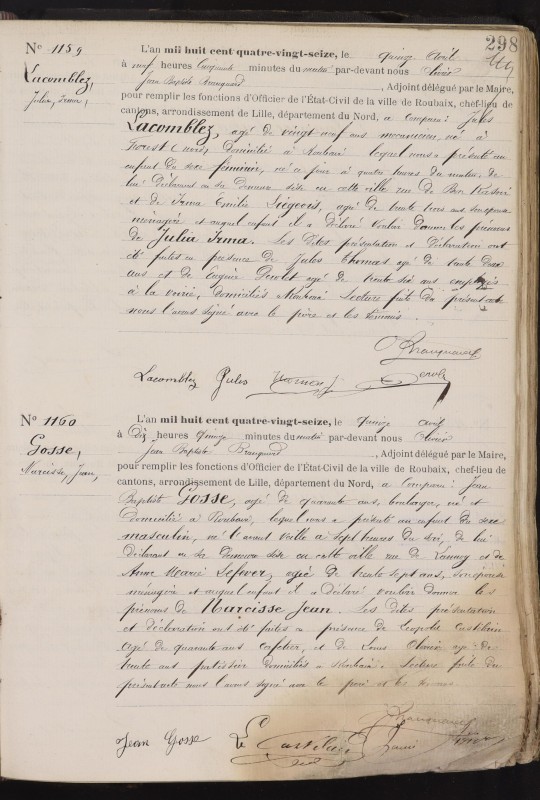 298
Nº 1159
Lacomblez,
Julia, Irma,
L'an mil huit cent quatre-vingt-seize, le quinze avril
à neuf heures cinquante minutes du matin par-devant nous Olivier
Jean Baptiste Branquart, Adjoint délégué par le Maire,
pour remplir les fonctions d'Officier de l'État-Civil de la ville de Roubaix, chef-lieu de
cantons, arrondissement de Lille, département du Nord, a comparu: Jules
Lacomblez, agé de vingt neuf ans, né à
Forest (Nord), domicilié à Roubaix lequel nous a présenté un
enfant du sexe féminin, née ce jour à quatre heures du matin, de
lui déclarant en sa demeure sise en cette ville rue de
et de Irma Emilie Liégeois, agée de trente trois ans, son épouse
ménagère et auquel enfant il a déclaré vouloir donner les prénoms
de Julia Irma. Les dites présentation et déclaration ont
été faites en présence de Jules Thomas agé de trente deux
ans et de Eugène Derolet agé de trente six ans employés
à la voirie, domiciliés Roubaix Lecture faite du présent acte
nous l'avons signé avec le père et les témoins.
Branquart
Lacomblez Jules
Nº 1160
Gosse,
Narcisse, Jean,
L'an mil huit cent quatre-vingt-seize, le quinze avril
à dix heures quinze minutes du matin par-devant nous Olivier
Jean Baptiste Branquart, Adjoint délégué par le Maire,
pour remplir les fonctions d'Officier de l'État-Civil de la ville de Roubaix, chef-lieu de
cantons, arrondissement de Lille, département du Nord, a comparu: Jean
Baptiste Gosse, agé de quarante ans, boulanger, né et
domicilié à Roubaix, lequel nous a présenté un enfant du sexe
masculin, né l'avant veille à sept heures du soir, de lui
déclarant en sa demeure sise en cette ville rue de Lannoy et de
Anne Marie Lefever, agée de trente sept ans, son épouse
ménagère et auquel enfant il a déclaré vouloir donner les
prénoms de Narcisse Jean. Les dites présentation
et déclaration ont été faites en présence de Léopold Castelain
agé de quarante ans cafetier, et de Louis Olivier agé de
trente ans patissier domiciliés à Roubaix. Lecture faite du
présent acte nous l'avons signé avec le père et les témoins
Branquart
Jean Gosse Castelain